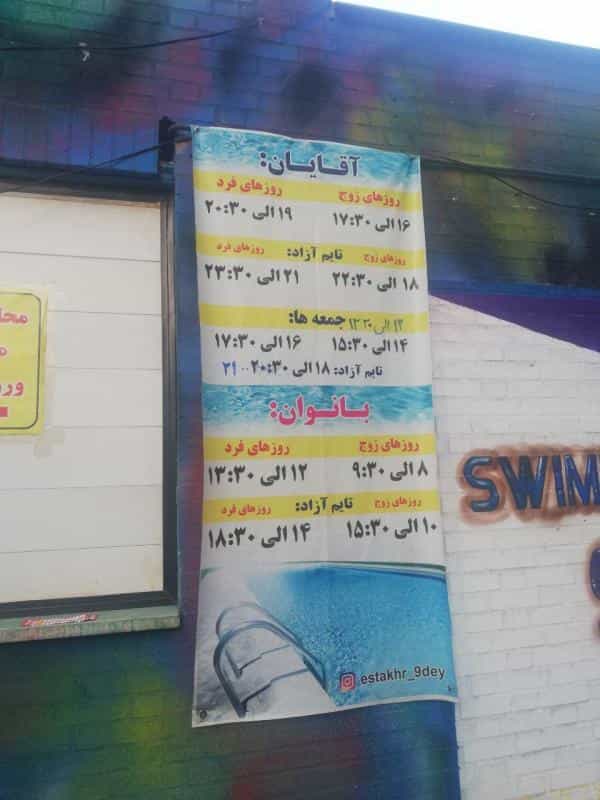 آقایان:
روزهای زوج روزهای فرد
۱۶ الی ۱۷:۳۰ ۱۹ الی ۲۰:۳۰
روزهای زوج تایم آزاد: روزهای فرد
۱۸ الی ۲۲:۳۰ ۲۱ الی ۲۳:۳۰
جمعه ها: ۱۲ الی
۱۴ الی ۱۵:۳۰ ۱۶ الی ۱۷:۳۰
تایم آزاد: ۱۸ الی ۲۰:۳۰ ۲۱
بانوان:
روزهای زوج روزهای فرد
۸ الی ۹:۳۰ ۱۲ الی ۱۳:۳۰
روزهای زوج تایم آزاد: روزهای فرد
۱۰ الی ۱۵:۳۰ ۱۴ الی ۱۸:۳۰
estakhr_9dey
SWIM